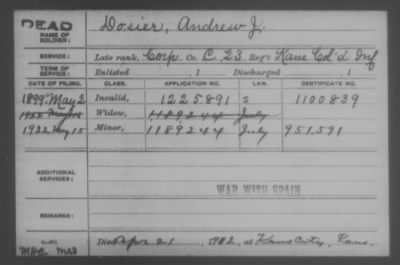 DEAD
NAME OF SOLDIER: Dosier, Andrew J.
SERVICE: Late rank, Corp Co. C, 23 Reg't Kans Col'd Inf
TERM OF SERVICE: Enlisted , 1 Discharged , 1
DATE OF FILING. CLASS. APPLICATION NO. LAW. CERTIFICATE NO.
1899 May 2 Invalid, 1225891 S 1100839
Widow, 1189244 July
1922 May 15 Minor, 1189244 July 951591
ADDITIONAL SERVICES:
WAR WITH SPAIN
REMARKS:
Died Apr 21 1902, at Kans City, Kans.